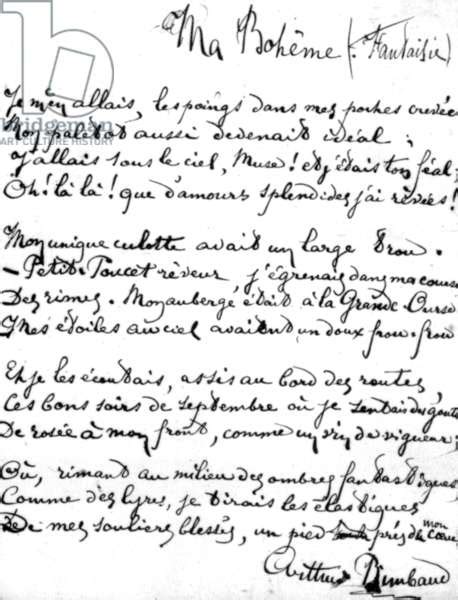 Ma Bohême (. Fantaisie)
Je m'en allais, les poings dans mes poches crevées
Mon paletot aussi devenait idéal ;
J'allais sous le ciel, Muse ! et j'étais ton féal ;
Oh ! là là ! que d'amours splendides j'ai rêvées !
Mon unique culotte avait un large trou.
– Petit-Poucet rêveur, j'égrenais dans ma course
Des rimes. Mon auberge était à la Grande-Ourse
Mes étoiles au ciel avaient un doux frou-frou
Et je les écoutais, assis au bord des routes,
Ces bons soirs de septembre où je sentais des gouttes
De rosée à mon front, comme un vin de vigueur ;
Où, rimant au milieu des ombres fantastiques,
Comme des lyres, je tirais les élastiques
De mes souliers blessés, un pied près de mon cœur
Arthur Rimbaud
bridgeman
ART CULTURE HISTORY